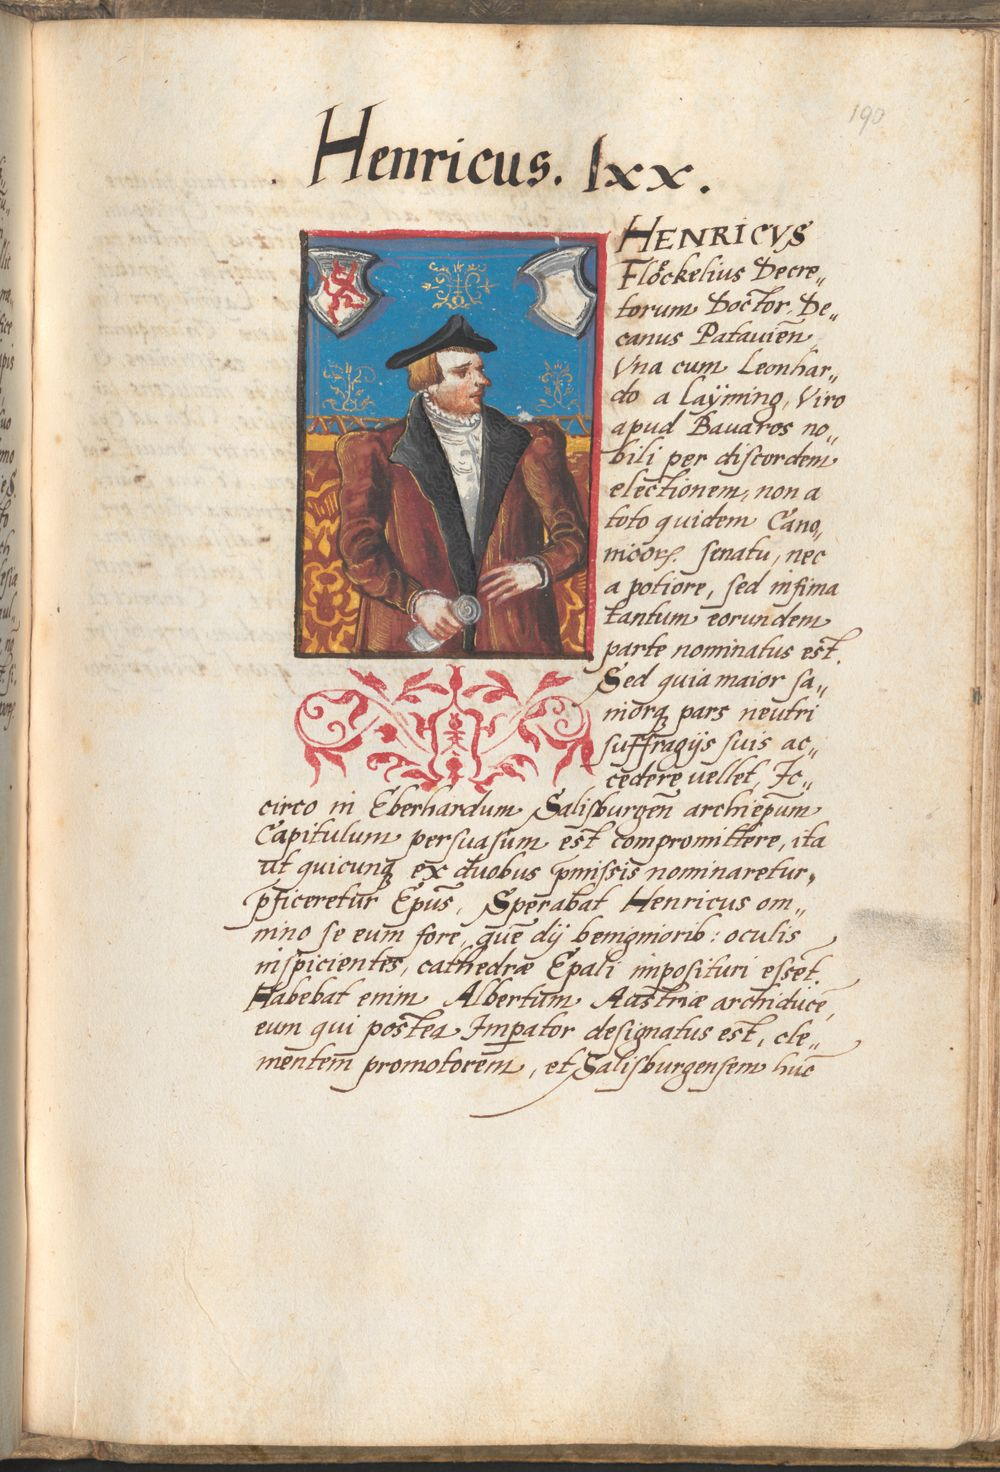 190
Henricus. lxx.
HENRICVS
Flöckelius Decre„
torum Doctor, De„
canus Patauien̄
Vna cum Leonhar„
do a Laÿming, Viro
apud Bauaros no„
bili per discordem
electionem, non a
toto quidem Cano„
nicorꝝ senatu, nec
a potiore, sed infima
tantum eorundem
parte nominatus est.
Sed quia maior sa„
niorqꝫ pars neutri
suffragijs suis ac„
cedere vellet, Ic„
circo in Eberhardum Salisburgen̄ archiep̄um
Capitulum persuasum est compromittere, ita
ut quicunqꝫ ex duobus p̄missis nominaretur,
p̄ficeretur Ep̄us, Sperabat Henricus om„
nino se eum fore, quē dij benigniorib: oculis
inspicientes, cathedræ Ep̄ali imposituri essēt.
Habebat enim Albertum Austriæ archiducē,
eum qui postea Imp̄ator designatus est, cle„
mentem promotorem, et Salisburgensem huc̄